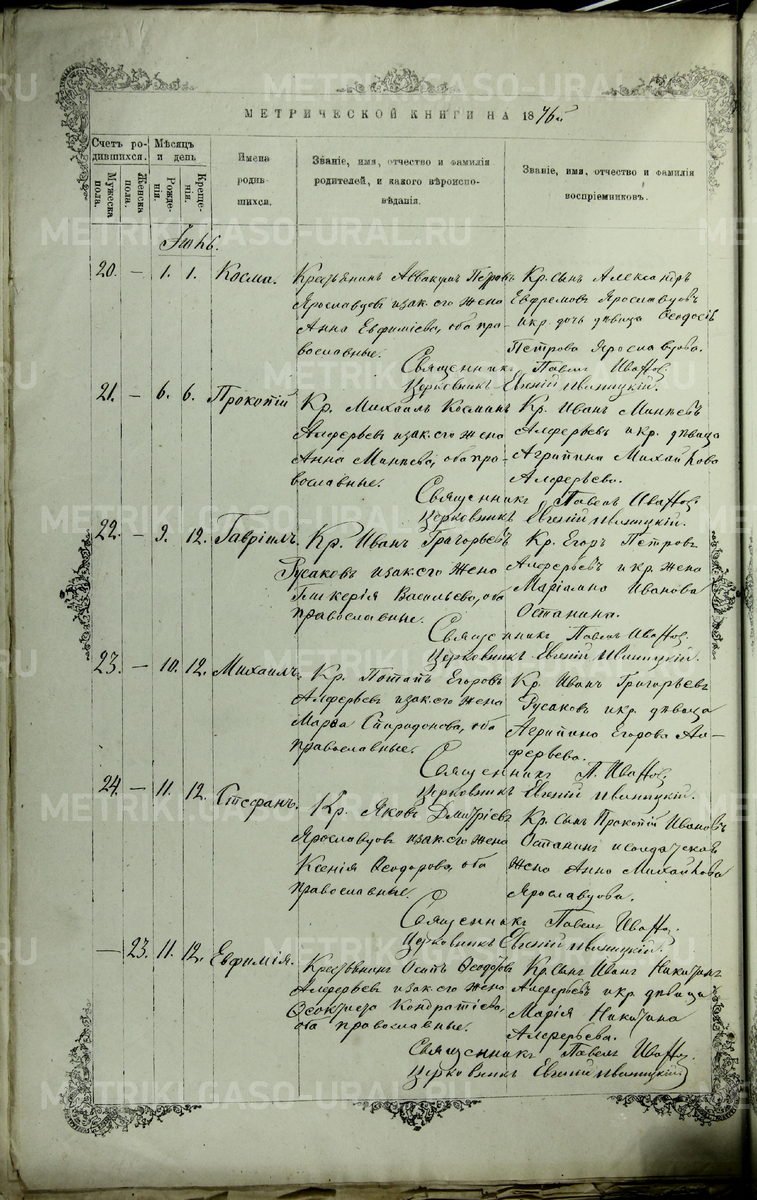 МЕТРИЧЕСКОЙ КНИГИ НА 1876й
Счетъ родившихся.
Мужеска пола.
Женска пола.
Мѣсяцъ и день
Рожденія.
Крещенія.
Имена родившихся.
Званіе, имя, отчество и фамилія родителей, и какого вѣроисповѣданія.
Званіе, имя, отчество и фамилія воспріемниковъ.
20. — 1. 1. Косма.
Крестьянинъ Аввакумъ Петровъ
Ярославцовъ и зак. его жена
Анна Евфиміева, оба пра-
вославные.
Кр. сынъ Александръ
Евфремовъ Ярославцовъ
и кр. дочь дѣвица Ѳеодосія
Петрова Ярославцова.
Священникъ Павелъ Ивановъ
Церковникъ Евгеній
21. — 6. 6. Прокопій
Кр. Михаилъ Косминъ
Алферьевъ и зак. его жена
Анна Минѣева, оба пра-
вославные.
Кр. Иванъ Минѣевъ
Алферьевъ и кр. дѣвица
Агрипина Михайлова
Алферьева.
Священникъ Павелъ Ивановъ
Церковникъ Евгеній
22. — 9. 12. Гавріилъ.
Кр. Иванъ Григорьевъ
Русаковъ и зак. его жена
Гликерія Васильева, оба
православные.
Кр. Егоръ Петровъ
Алферьевъ и кр. жена
Маріамна Иванова
Останина.
Священникъ Павелъ Ивановъ
Церковникъ Евгеній
23. — 10. 12. Михаилъ.
Кр. Потапъ Егоровъ
Алферьевъ и зак. его жена
Марѳа Спиридонова, оба
православные.
Кр. Иванъ Григорьевъ
Русаковъ и кр. дѣвица
Агрипина Егорова Ал-
ферьева.
Священникъ П. Ивановъ
Церковникъ Евгеній
24. — 11. 12. Стефанъ.
Кр. Яковъ Дмитріевъ
Ярославцовъ и зак. его жена
Ксенія Ѳеодорова, оба
православные.
Кр. сынъ Прокопій Ивановъ
Останинъ и солдатская
жена Анна Михайлова
Ярославцова.
Священникъ Павелъ Ивановъ
Церковникъ Евгеній
— 23. 11. 12. Евфимія.
Крестьянинъ Осипъ Ѳеодотовъ
Алферьевъ и зак. его жена
Ѳеоктиста Кондратіева,
оба православные.
Кр. сынъ Иванъ Никитинъ
Алферьевъ и кр. дѣвица
Марія Никитина
Алферьева.
Священникъ Павелъ Ивановъ
Церковникъ Евгеній
METRIKI.GASO-URAL.RU